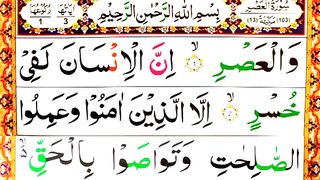 سُورَةُ الْعَصْرِ
(103) مَكِّيَّةٌ (13)
بِسْمِ اللّٰهِ الرَّحْمٰنِ الرَّحِيْمِ
اٰيَاتُهَا 3
وَالْعَصْرِ ۙ﴿۱﴾ اِنَّ الْاِنْسَانَ لَفِیْ
خُسْرٍ ۙ﴿۲﴾ اِلَّا الَّذِيْنَ اٰمَنُوْا وَعَمِلُوا
الصّٰلِحٰتِ وَتَوَاصَوْا بِالْحَقِّ